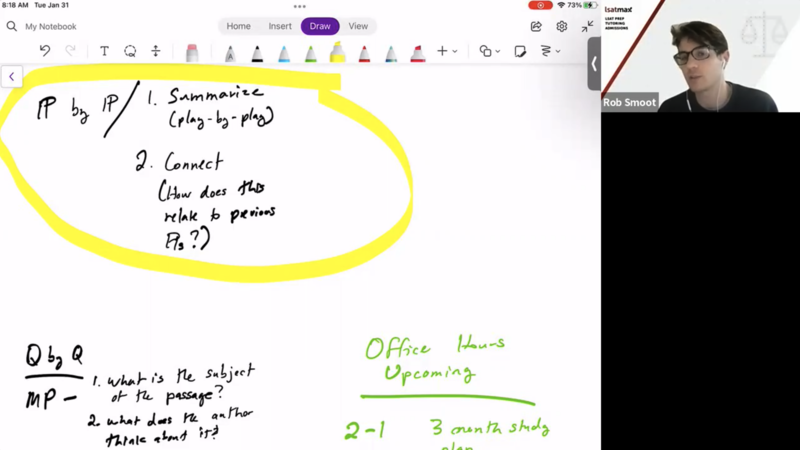 8:18 AM Tue Jan 31
73%
My Notebook
Home Insert Draw View
¶ by ¶ / 1. Summarize
(play-by-play)
2. Connect
(How does this
relate to previous
¶s?)
Q by Q
MP -
1. what is the subject
of the passage?
2. what does the author
think about it?
Office Hours
Upcoming
2-1 3 month study
plan
lsatmax
LSAT PREP
TUTORING
ADMISSIONS
Rob Smoot